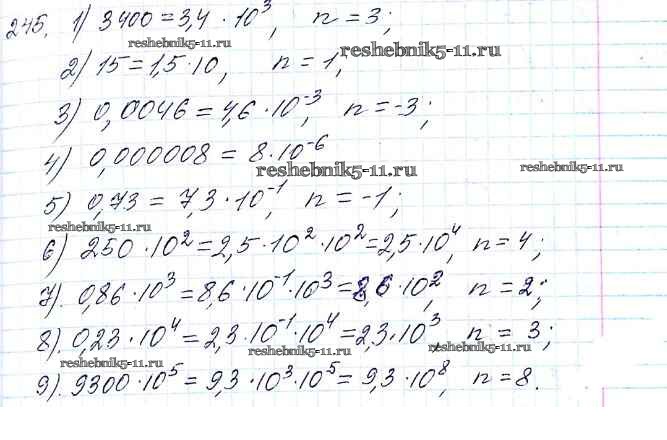 245. 1) 3400 = 3,4 · 10³, n = 3;
reshebnik5-11.ru reshebnik5-11.ru
2) 15 = 1,5 · 10, n = 1,
3) 0,0046 = 4,6 · 10⁻³, n = -3;
4) 0,000008 = 8 · 10⁻⁶
reshebnik5-11.ru reshebnik5-11.ru
5) 0,73 = 7,3 · 10⁻¹, n = -1;
reshebnik5-11.ru
6) 250 · 10² = 2,5 · 10² · 10² = 2,5 · 10⁴, n = 4;
7). 0,86 · 10³ = 8,6 · 10⁻¹ · 10³ = 8,6 · 10², n = 2;
8). 0,23 · 10⁴ = 2,3 · 10⁻¹ · 10⁴ = 2,3 · 10³, n = 3;
reshebnik5-11.ru reshebnik5-11.ru reshebnik5-11.ru
9). 9300 · 10⁵ = 9,3 · 10³ · 10⁵ = 9,3 · 10⁸, n = 8.